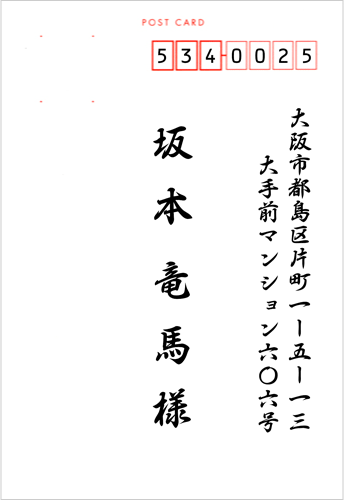 POST CARD
534-0025
大阪市都島区片町一ー五ー一三
大手前マンション六〇六号
坂本竜馬様